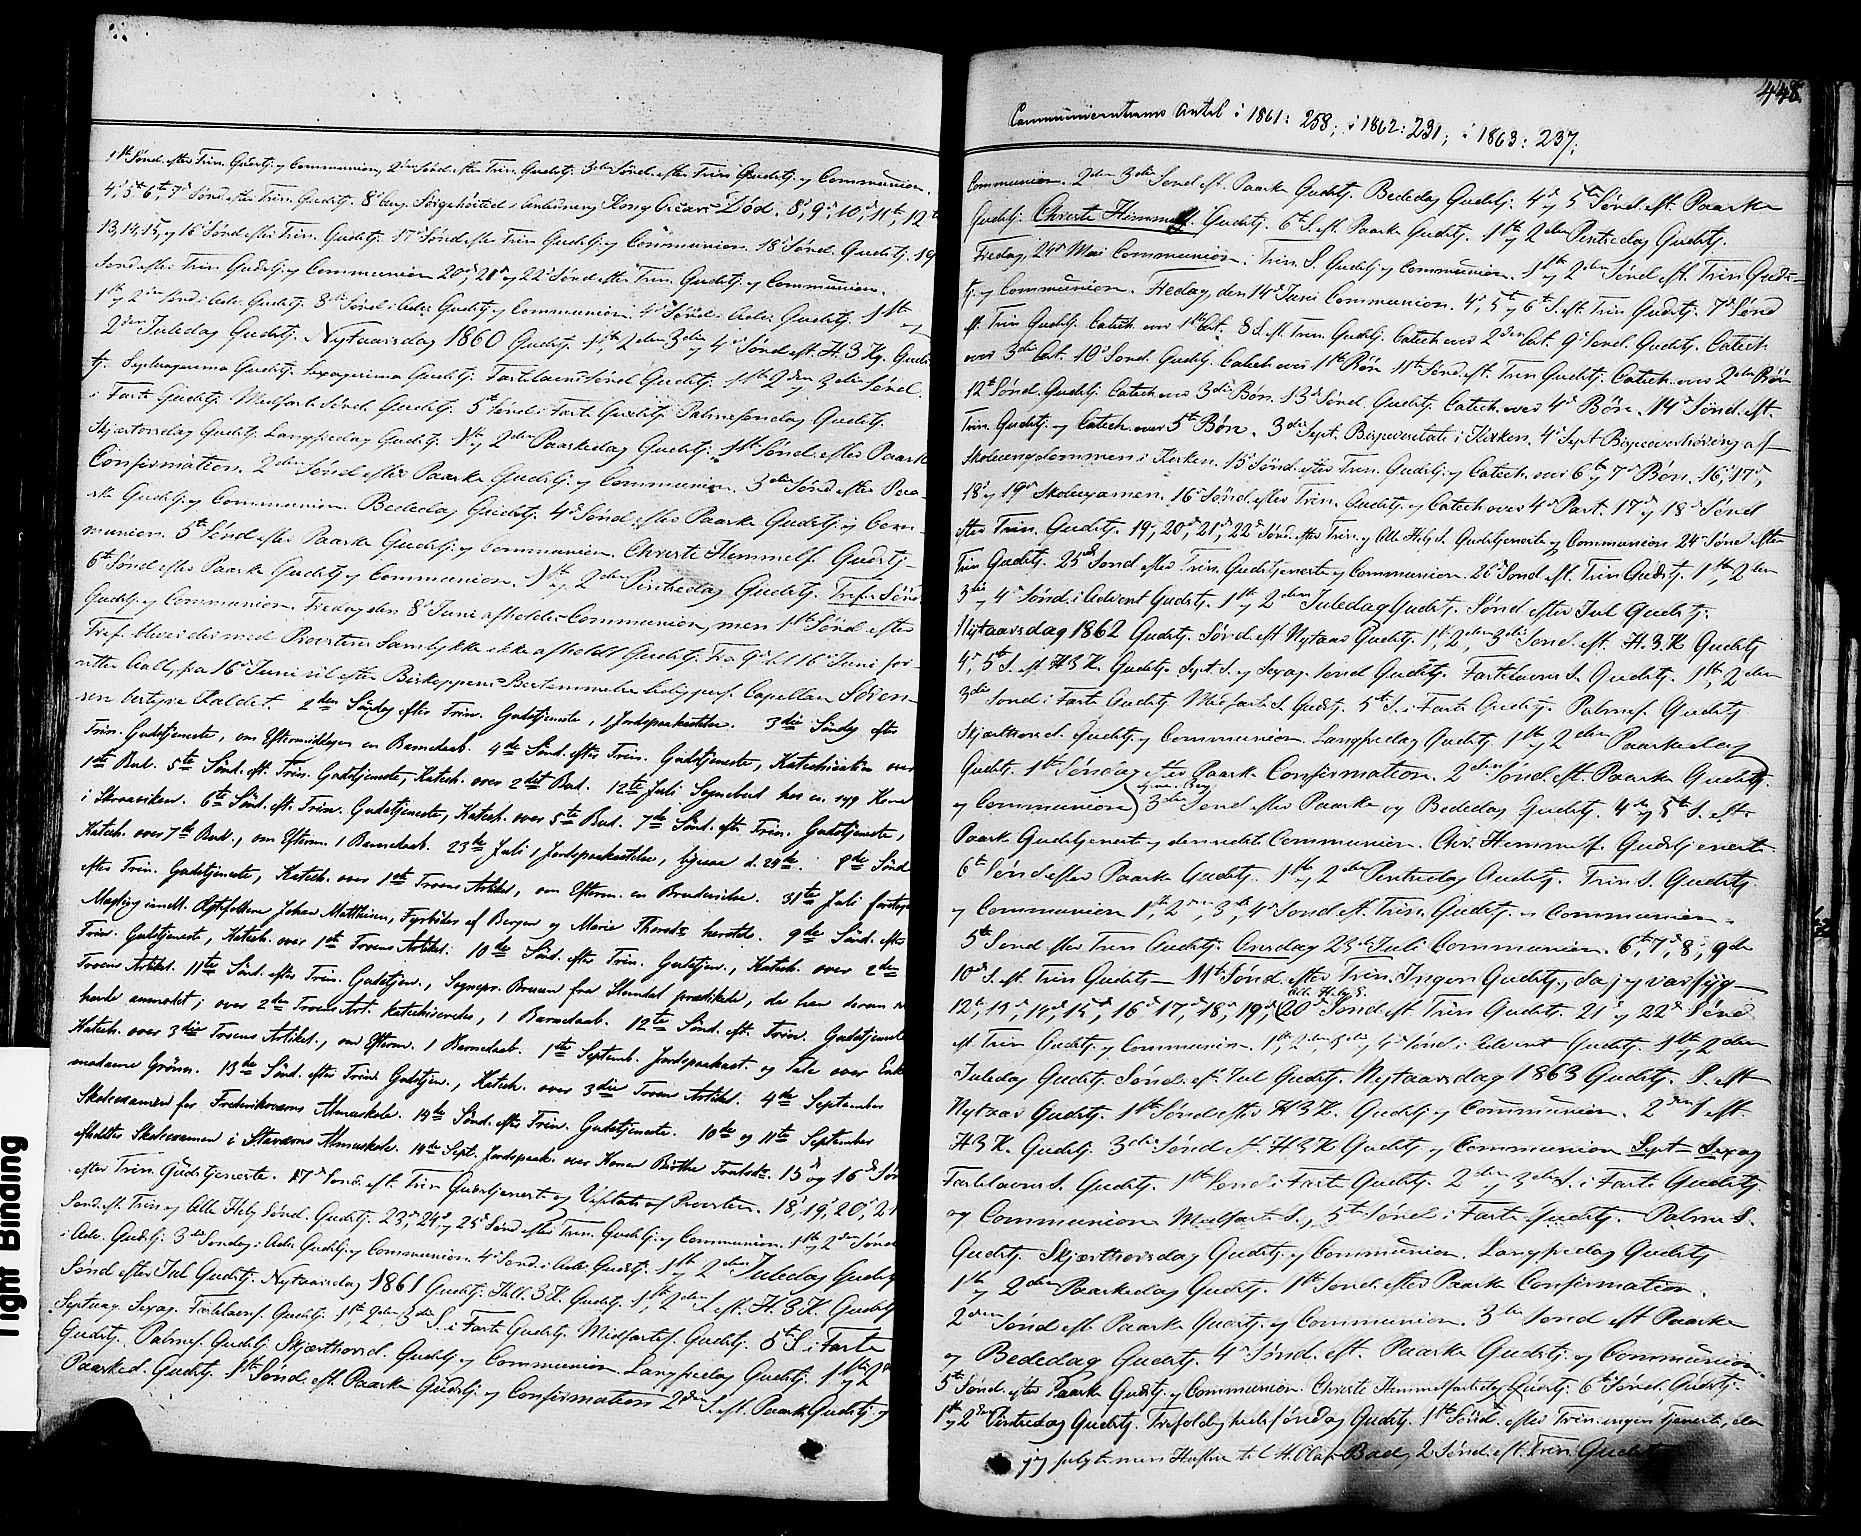 1ste Sønd. efter Trin. Gudstj. og Communion, 2den Sønd. efter Trin. Gudstj. 3die Sønd. efter Trin. Gudstj. og Communion.
4de, 5te, 6te, 7de Sønd. efter Trin. Gudstj. 8 Aug. Sørgehøitid i Anledning Kong Oscars Død. 8de, 9de, 10de, 11te, 12te
13, 14, 15, og 16 Sønd. efter Trin. Gudstj. 17de Sønd. efter Trin. Gudstj. og Communion. 18de Sønd. Gudstj. 19
Sønd. efter Trin. Gudstj. og Communion 20de, 21de og 22de Sønd. efter Trin. Gudstj. og Communion.
1ste og 2den Sønd. i Adv. Gudstj. 3die Sønd. i Adv. Gudstj. og Communion. 4de Sønd. i Adv. Gudstj. 1ste og
2den Juledag Gudstj. Nytaarsdag 1860 Gudstj. 1ste, 2den 3die og 4de Sønd. eft. H. 3 Kg. Guds
tj. Septuagesima Gudstj. Sexagesima Gudstj. Fastelavns Sønd. Gudstj. 1ste 2den 3die Sønd.
i Faste Gudstj. Midfaste Sønd. Gudstj. 5te Sønd. i Fast. Gudstj. Palmesøndag Gudstj.
Skjærtorsdag Gudstj. Langfredag Gudstj. 1ste og 2den Paaskedag Gudstj. 1ste Sønd. efter Paaske
Confirmation. 2den Sønd. efter Paaske Gudstj. og Communion. 3die Sønd. efter Paa-
ske Gudstj. og Communion. Bededag Gudstj. 4de Sønd. efter Paaske Gudstj. og Com-
munion. 5te Sønd. efter Paaske Gudstj. og Communion. Christi Himmelf. Gudstj.
6te Sønd. efter Paaske Gudstj. og Communion. 1ste og 2den Pintsedag Gudstj. Tref. Sønd.
Gudstj. og Communion. Fredag den 8de Juni afholdes Communion, men 1ste Sønd. efter
Tref. blev der med Provstens Samtykke ikke afholdt Gudstj. Fra 9de til 16de Juni for-
rettet Aall, fra 16de Juni vil efter Biskoppens Bestemmelse Capellan Søren-
sen bestyre Kaldet. 2den Søndag efter Trin. Gudstjeneste, 1 Jordpaakastelse. 3die Søndag efter
Trin. Gudstjeneste, om Eftermiddagen en Barnedaab. 4de Sønd. efter Trin. Gudstjeneste, Katechisation over
1ste Bud. 5te Sønd. eft. Trin. Gudstjeneste, Katech. over 2det Bud. 12te Juli Sognebud hos en syg Kone
i Skraaviken. 6te Sønd. eft. Trin. Gudstjeneste, Katech. over 5te Bud. 7de Sønd. eft. Trin. Gudstjeneste,
Katech. over 7de Bud., om Efterm. 1 Barnedaab. 23de Juli 1 Jordpaakastelse, ligesaa d. 29de. 8de Sønd.
efter Trin. Gudstjeneste, Katech. over 1ste Troens Artikel, om Efterm. en Brudevielse. 31te Juli foretoges
Mægling imell. Ægtefolkene Johan Matthias, Fyrbøder af Bergen og Marie Thorsd. herstds. 9de Sønd. efter
Trin. Gudstjeneste, Katech. over 1ste Troens Artikel. 10de Sønd. efter Trin. Gudstjen., Katech. over 2den
Troens Artikel. 11te Sønd. efter Trin. Gudstjen., Sognepr. Bruun fra Slemdal prædikede, da han derom var
havde anmodet; over 2den Troens Art. katechiseredes, 1 Barnedaab. 12te Sønd. eft. Trin. Gudstjeneste
Katech. over 3die Troens Artikel, om Efterm. 1 Barnedaab. 1ste Septemb. Jordpaakast. og Tale over Enke
madame Grønn. 13de Sønd. efter Trin. Gudstjen., Katech. over 3die Troens Artikel. 4de September
Skoleexamen for Frederiksværns Almueskole. 14de Sønd. efter Trin. Gudstjeneste. 10de og 11te September
afholdtes Skoleexamen i Staværns Almueskole. 14de Sept. Jordpaak. over Konen Birthe 15de og 16de Sønd
efter Trin. Gudstjeneste. 17de Sønd. eft. Trin Gudstjeneste og Visitats af Provsten. 18, 19, 20, 21
Sønd. eft. Trin og Alle Helg. Sønd. Gudstj. 23de, 24de og 25de Sønd efter Trin. Gudstj. og Communion. 1ste og 2den Sønd
i Adv. Gudstj. 3die Søndag i Adv. Gudstj. og Communion. 4de Sønd. i Adv. Gudstj. 1ste og 2den Juledag Gudstj.
Sønd. efter Jul Gudstj. Nytaarsdag 1861 Gudstj. Hell. 3 K. Gudstj. 1ste, 2den S. eft. H. 3 K. Gudstj.
Septuag. Sexag. Fastelavnsf. Gudstj. 1ste, 2den, 3die S. i Faste Gudstj. Midfastesf. Gudstj. 5te S. i Faste
Gudstj. Palmesf. Gudstj. Skjærthorsd. Gudstj. og Communion. Langfredag Gudstj. 1ste og 2den
Paasked. Gudstj. 1ste Sønd. eft. Paaske Gudstj. og Confirmation 2den S. eft. Paaske Gudstj. og
448.
Communicanternes Antal i 1861: 258; i 1862: 231; i 1863: 237;
Communion. 2den 3die Sønd eft. Paaske Gudstj. Bededag Gudstj. 4de og 5te Sønd. eft. Paaske
Gudstj. Christi Himmelf. Gudstj. 6te S. eft. Paaske Gudstj. 1ste og 2den Pintsedag Gudstj.
Fredag 24de Mai Communion. Trin. S. Gudstj. og Communion. 1ste og 2den Sønd. eft. Trin Guds-
tj. og Communion. Fredag, den 14de Juni Communion. 4de, 5te og 6te S. eft. Trin Gudstj. 7de Sønd
eft. Trin Gudstj. Catech. over 1ste Art. 8 S. eft. Trin. Gudstj. Catech. over 2den Art. 9de Sønd. Gudstj. Catech.
over 3die Art. 10de Sønd. Gudstj. Catech. over 1ste Bøn 11te Sønd. eft. Trin Gudstj. Catech. over 2den Bøn
12te Sønd. Gudstj. Catech. over 3die Bøn. 13de Sønd. Gudstj. Catech. over 4de Bøn. 14de Sønd. eft.
Trin. Gudstj. og Catech. over 5te Bøn. 3die Sept. Bispevisitats i Kirken. 4de Sept Bispeoverhøring af
Skoleungdommen i Kirken. 15de Sønd. efter Trin. Gudstj. og Catech. over 6te og 7de Bøn. 16de, 17de,
18de og 19de Skoleexamen. 16de Sønd. efter Trin. Gudstj. og Catech over 4de Part. 17de og 18de Sønd
efter Trin. Gudstj. 19, 20de, 21de, 22de Sønd. efter Trin. og Alle Helg. S. Gudstjeneste og Communion 24de Sønd. efter
Trin Gudstj. 25de Sønd efter Trin. Gudstjeneste og Communion. 26de Sønd eft. Trin Gudstj. 1ste, 2den
3die og 4de Sønd. i Advent Gudstj. 1ste og 2den Juledag Gudstj. Sønd. efter Jul Gudstj.
Nytaarsdag 1862 Gudstj. Sønd. eft Nytaar Gudstj. 1ste, 2den, 3die Sønd. eft. H. 3 K Gudstj
4de, 5te S. eft H 3 K. Gudstj. Sept. S. og Sexag. Sønd Gudstj. Fastelavns S. Gudstj. 1ste, 2den
3die Sønd i Faste Gudstj. Midfaste S. Gudstj. 5te S. i Faste Gudstj. Palmesf. Gudstj
Skjærthorsd. Gudstj. og Communion. Langfredag Gudstj. 1ste og 2den Paaskedag
Gudstj. 1ste Søndag efter Paaske Confirmation. 2den Sønd. eft. Paaske Gudstj.
og Communion) 3die Sønd efter Paaske og Bededag Gudstj. 4de og 5te S. eft.
Paaske Gudstjeneste og den sidste Communion. Chr. Himmelf. Gudstjeneste.
6te Sønd efter Paaske Gudstj. 1ste og 2den Pintsedag Gudstj. Trin S. Gudstj.
og Communion 1ste, 2den, 3die, 4de Sønd eft. Trin. Gudstj. og Communion.
5te Sønd. efter Trin Gudstj. Onsdag 23de Juli Communion. 6te, 7de, 8de, 9de
10de S. eft. Trin Gudstj. 11te Sønd. efter Trin. Ingen Gudstj., da jeg var syg
Alle Helg. S.
12te, 13de, 14de, 15de, 16de 17de, 18de, 19de, (20de Sønd eft Trin Gudstj. 21de og 22de Sønd
eft Trin Gudstj. og Communion. 1ste, 2den, 3die og 4de Sønd. i Advent Gudstj. 1ste og 2den
Juledag Gudstj. Sønd. eft. Jul Gudstj. Nytaarsdag 1863 Gudstj. S. eft
Nytaar Gudstj. 1ste Sønd efter H 3 K. Gudstj. og Communion. 2den S. eft.
H 3 K. Gudstj. 3die Sønd eft. H 3 K Gudstj og Communion Sept. Sexag
Fastelavns S. Gudstj. 1ste Sønd i Faste Gudstj. 2den og 3die S. i Faste Gudstj.
og Communion Midfaste S., 5te Sønd i Faste Gudstj. Palme S.
Gudstj. Skjærthorsdag Gudstj. og Communion. Langfredag Gudstj
1ste og 2den Paaskedag Gudstj. 1ste Sønd. efter Paaske Confirmation.
2den Sønd eft. Paaske Gudstj. og Communion. 3die Sønd eft Paaske
og Bededag Gudstj. 4de Sønd. eft. Paaske Gudstj. og Communion.
5te Sønd. efter Paaske Gudstj. og Communion. Christi Himmelfartsdag Gudstj. 6te Sønd. Gudstj.
1ste og 2den Pintsedag Gudstj. Trefoldighedssøndag Gudstj. 1ste Sønd. efter Trin. ingen Tjeneste, da
jeg fulgte min Hustru til St. Olafs Bad, 2 Sønd. eft. Trin. Gudstj.
Tight Binding